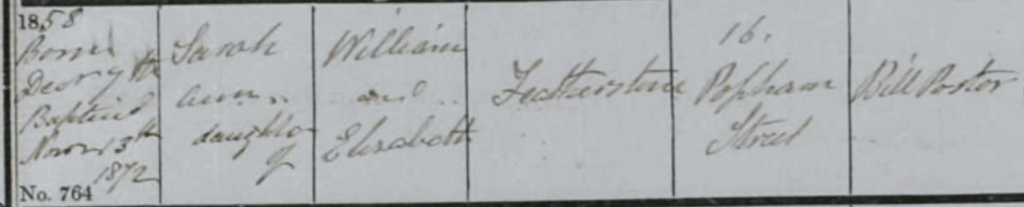 1858
Born
Decr 9th
Baptised
Novr 13th
1872
No. 764
Sarah
Ann
daughter
of
William
and
Elizabeth
Featherstone
16.
Popham
Street
Bill Poster